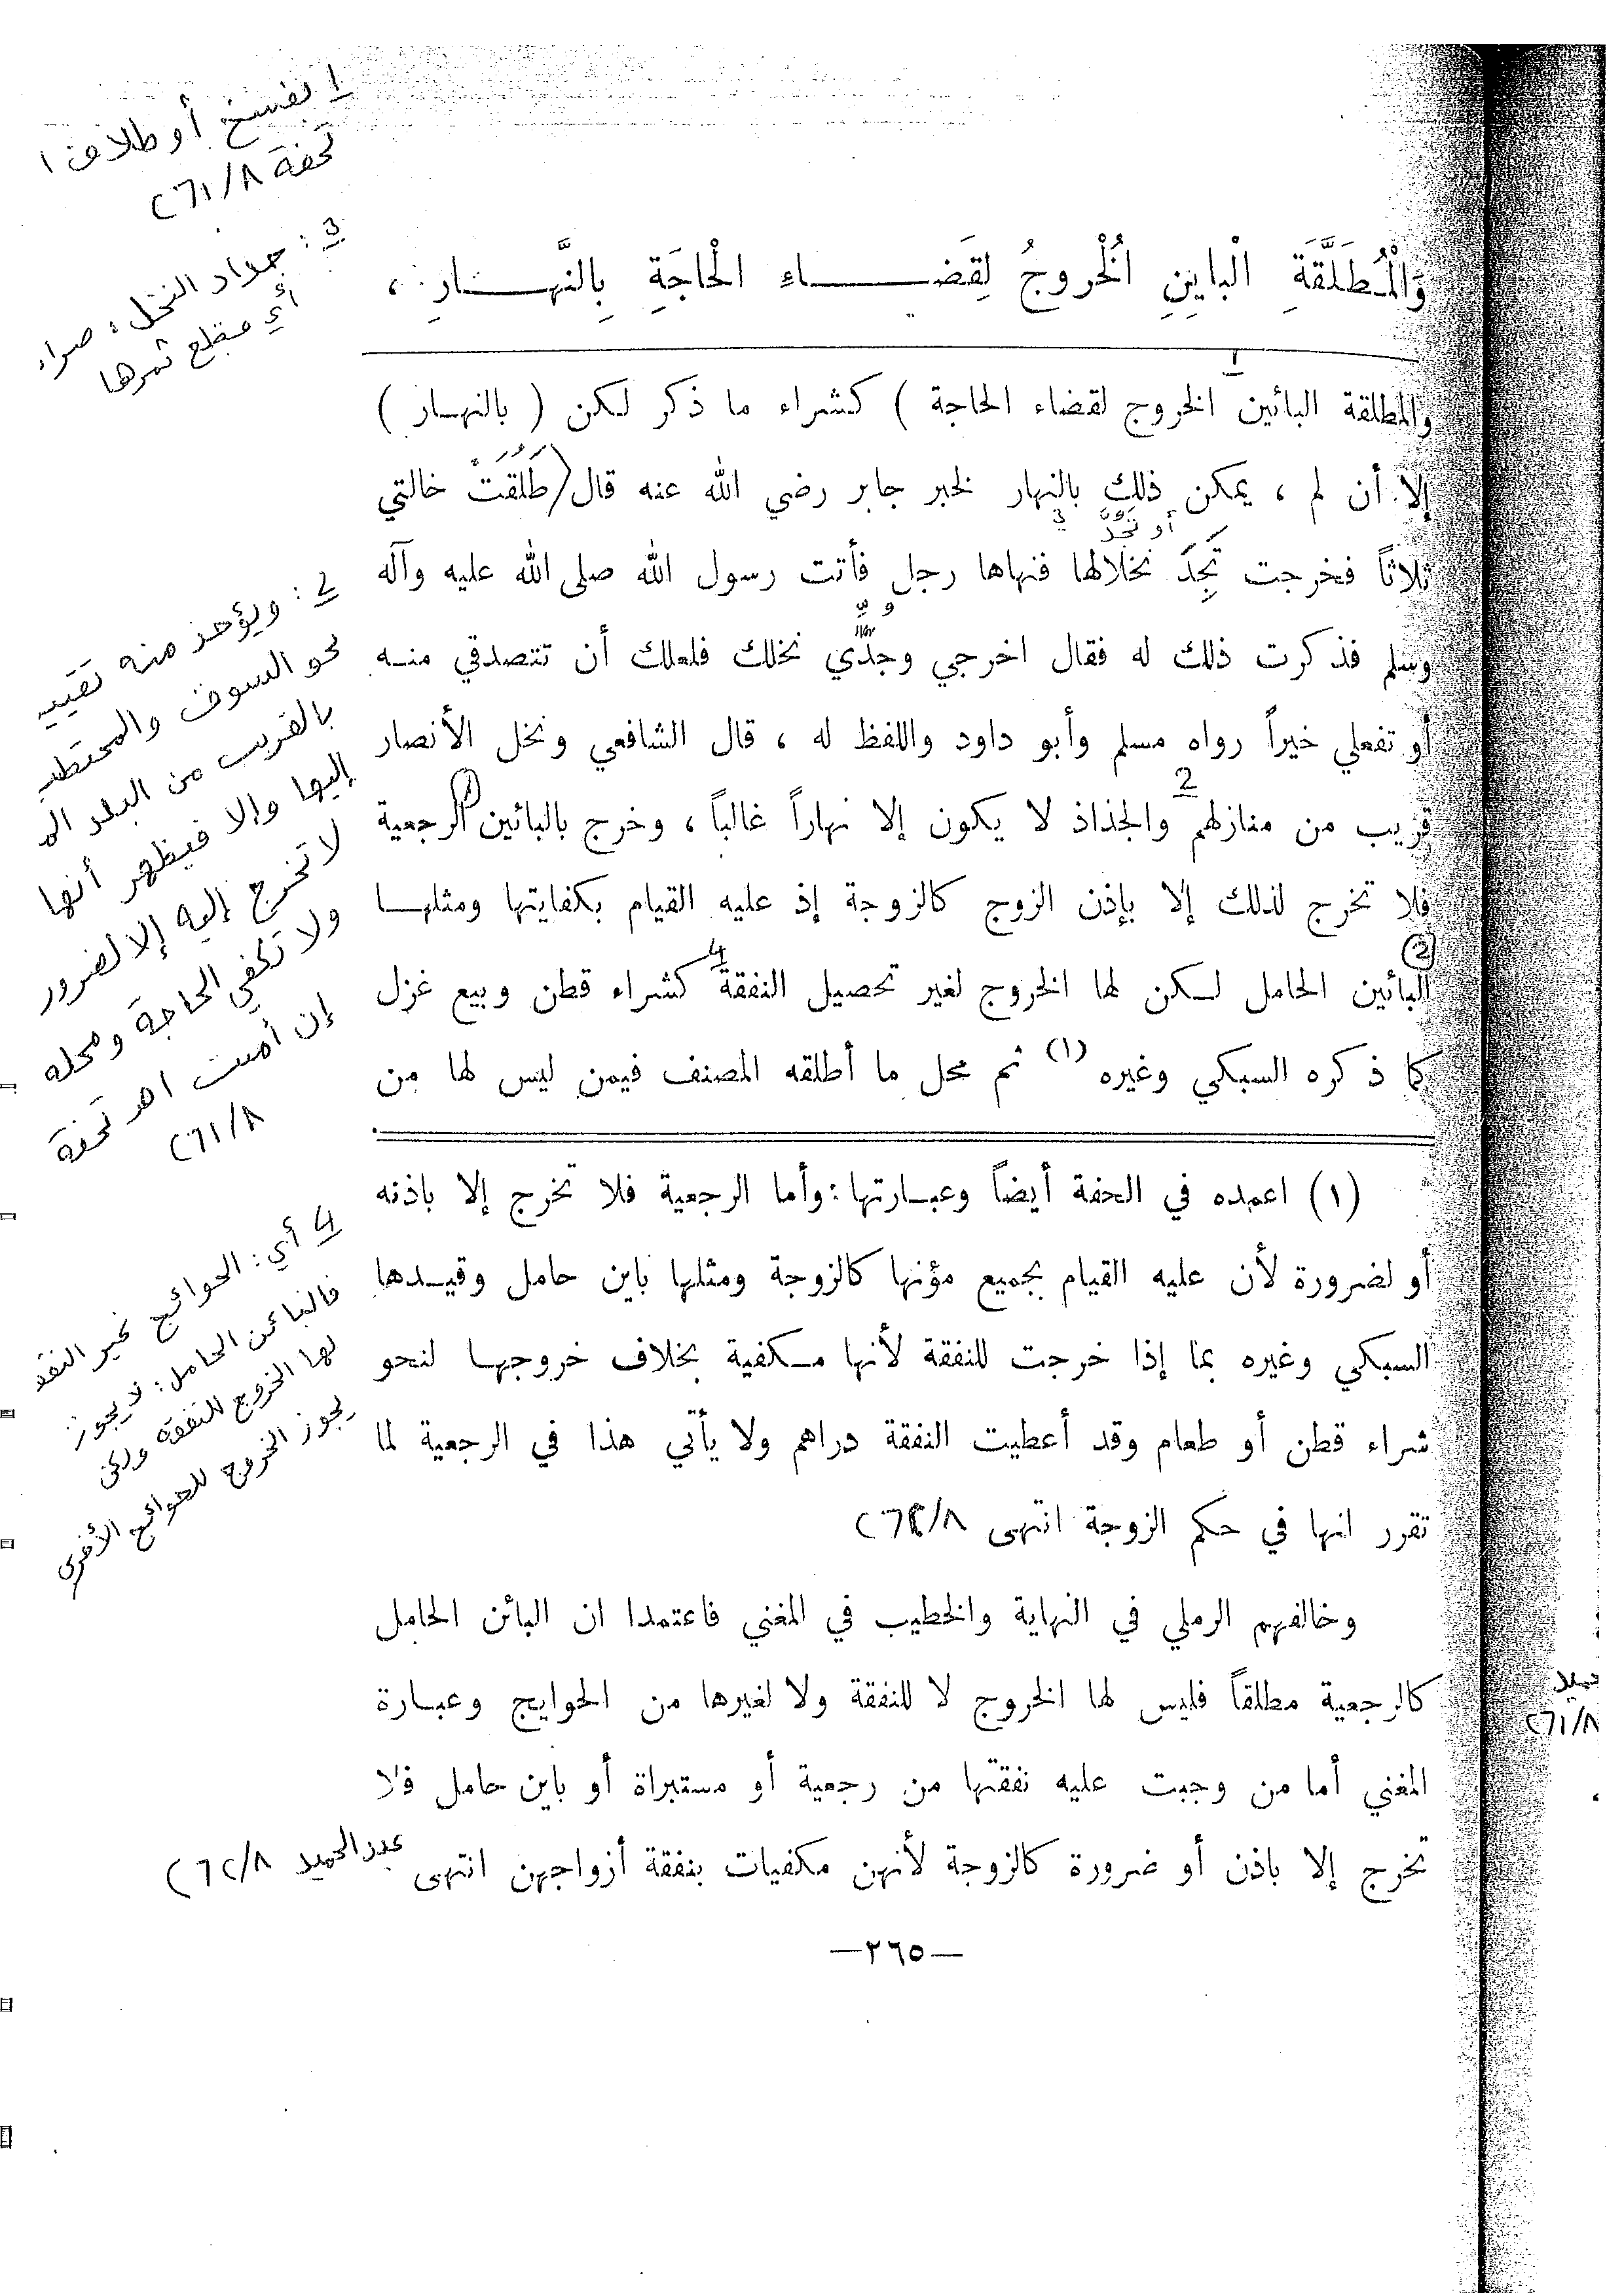 وَالْمُطَلَّقَةِ الْبايِنِ الْخُروجُ لِقَضـــاءِ الْحاجَةِ بِالنَّهــارِ ،
والمطلقة البائين الخروج لقضاء الحاجة ) كشراء ما ذكر لكن ( بالنهار )
إلا أن لم ، يمكن ذلك بالنهار لخبر جابر رضي الله عنه قال طَلُقَتْ خالتي
أو تَجُدَّ 3
ثلاثاً فخرجت تَجِدَ نخلالها فنهاها رجل فأتت رسول الله صلى الله عليه وآله
وسلم فذكرت ذلك له فقال اخرجي وجدّي نخلك فلعلك أن تتصدقي منه
أو تفعلي خيراً رواه مسلم وأبو داود واللفظ له ، قال الشافعي ونخل الأنصار
قريب من منازلهم 2 والجذاذ لا يكون إلا نهاراً غالباً ، وخرج بالبائين (1) الرجعية
فلا تخرج لذلك إلا بإذن الزوج كالزوجة إذ عليه القيام بكفايتها ومثلهـا
(2) البائين الحامل لكن لها الخروج لغير تحصيل النفقة 4 كشراء قطن وبيع غزل
كما ذكره السبكي وغيره (١) ثم محل ما أطلقه المصنف فيمن ليس لها من
(١) اعمده في الحفة أيضاً وعبـارتها : وأما الرجعية فلا تخرج إلا باذنه
أو لضرورة لأن عليه القيام بجميع مؤنها كالزوجة ومثلها باين حامل وقيـدها
السبكي وغيره بما إذا خرجت للنفقة لأنها مـكفية بخلاف خروجهـا لنحو
شراء قطن أو طعام وقد أعطيت النفقة دراهم ولا يأتي هذا في الرجعية لما
تقرر انها في حكم الزوجة انتهى ٨/٢٦٢
وخالفهم الرملي في النهاية والخطيب في المغني فاعتمدا ان البائن الحامل
كالرجعية مطلقاً فليس لها الخروج لا للنفقة ولا لغيرها من الحوايج وعبـارة
المغني أما من وجبت عليه نفقتها من رجعية أو مستبراة أو باين حامل فلا
تخرج إلا باذن أو ضرورة كالزوجة لأنهن مكفيات بنفقة أزواجهن انتهى عبدالحميد ٨/٢٦٢
—٢٦٥—
1 بفسخ أو طلاق ا
تحفة ٨/٢٦١
3 : جداد النخل :
أي قطع ثمرها
2 : ويؤخذ منه تقييد
نحو السوق والمحتطب
بالقريب من البلد
إليها وإلا فيظهر أنها
لا تخرج إليه إلا لضرور
ولا تكفي الحاجة ومحله
إن أمنت اهـ تحفة
٨/٢٦١
4 أي : الحوائج غير النفقة
فالبائن الحامل : لا يجوز
لها الخروج للنفقة ولكن
يجوز الخروج للحوائج الأخرى
٨/٢٦١